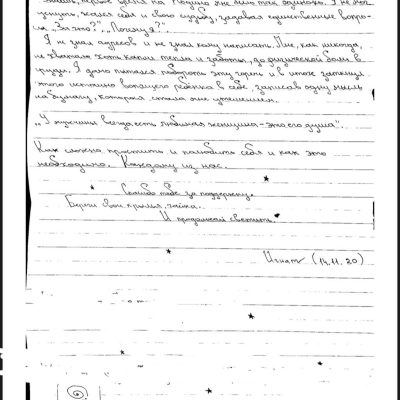 первое время на Родине так одиноко. Я не мог
уснуть, жалел себя и свою судьбу, задавал единственные вопро-
сы „За что?“, „Почему?“.
Я не знал адресов и не знал кому написать. Мне, как никогда,
не хватало хоть тепла и заботы, до физической боли в
груди. Я долго пытался побороть эту горечь и в итоге заткнул
этого истошно вопящего ребёнка в себе, записав одну мысль
на бумагу, которая стала мне утешением.
„У мужчины всегда есть любимая женщина - это его душа“.
Как сложно простить и полюбить себя и как это
необходимо. Каждому из нас.
Спасибо тебе за поддержку.
Береги свои крылья, чайка.
И продолжай светить.
Игнат (14.11.20)